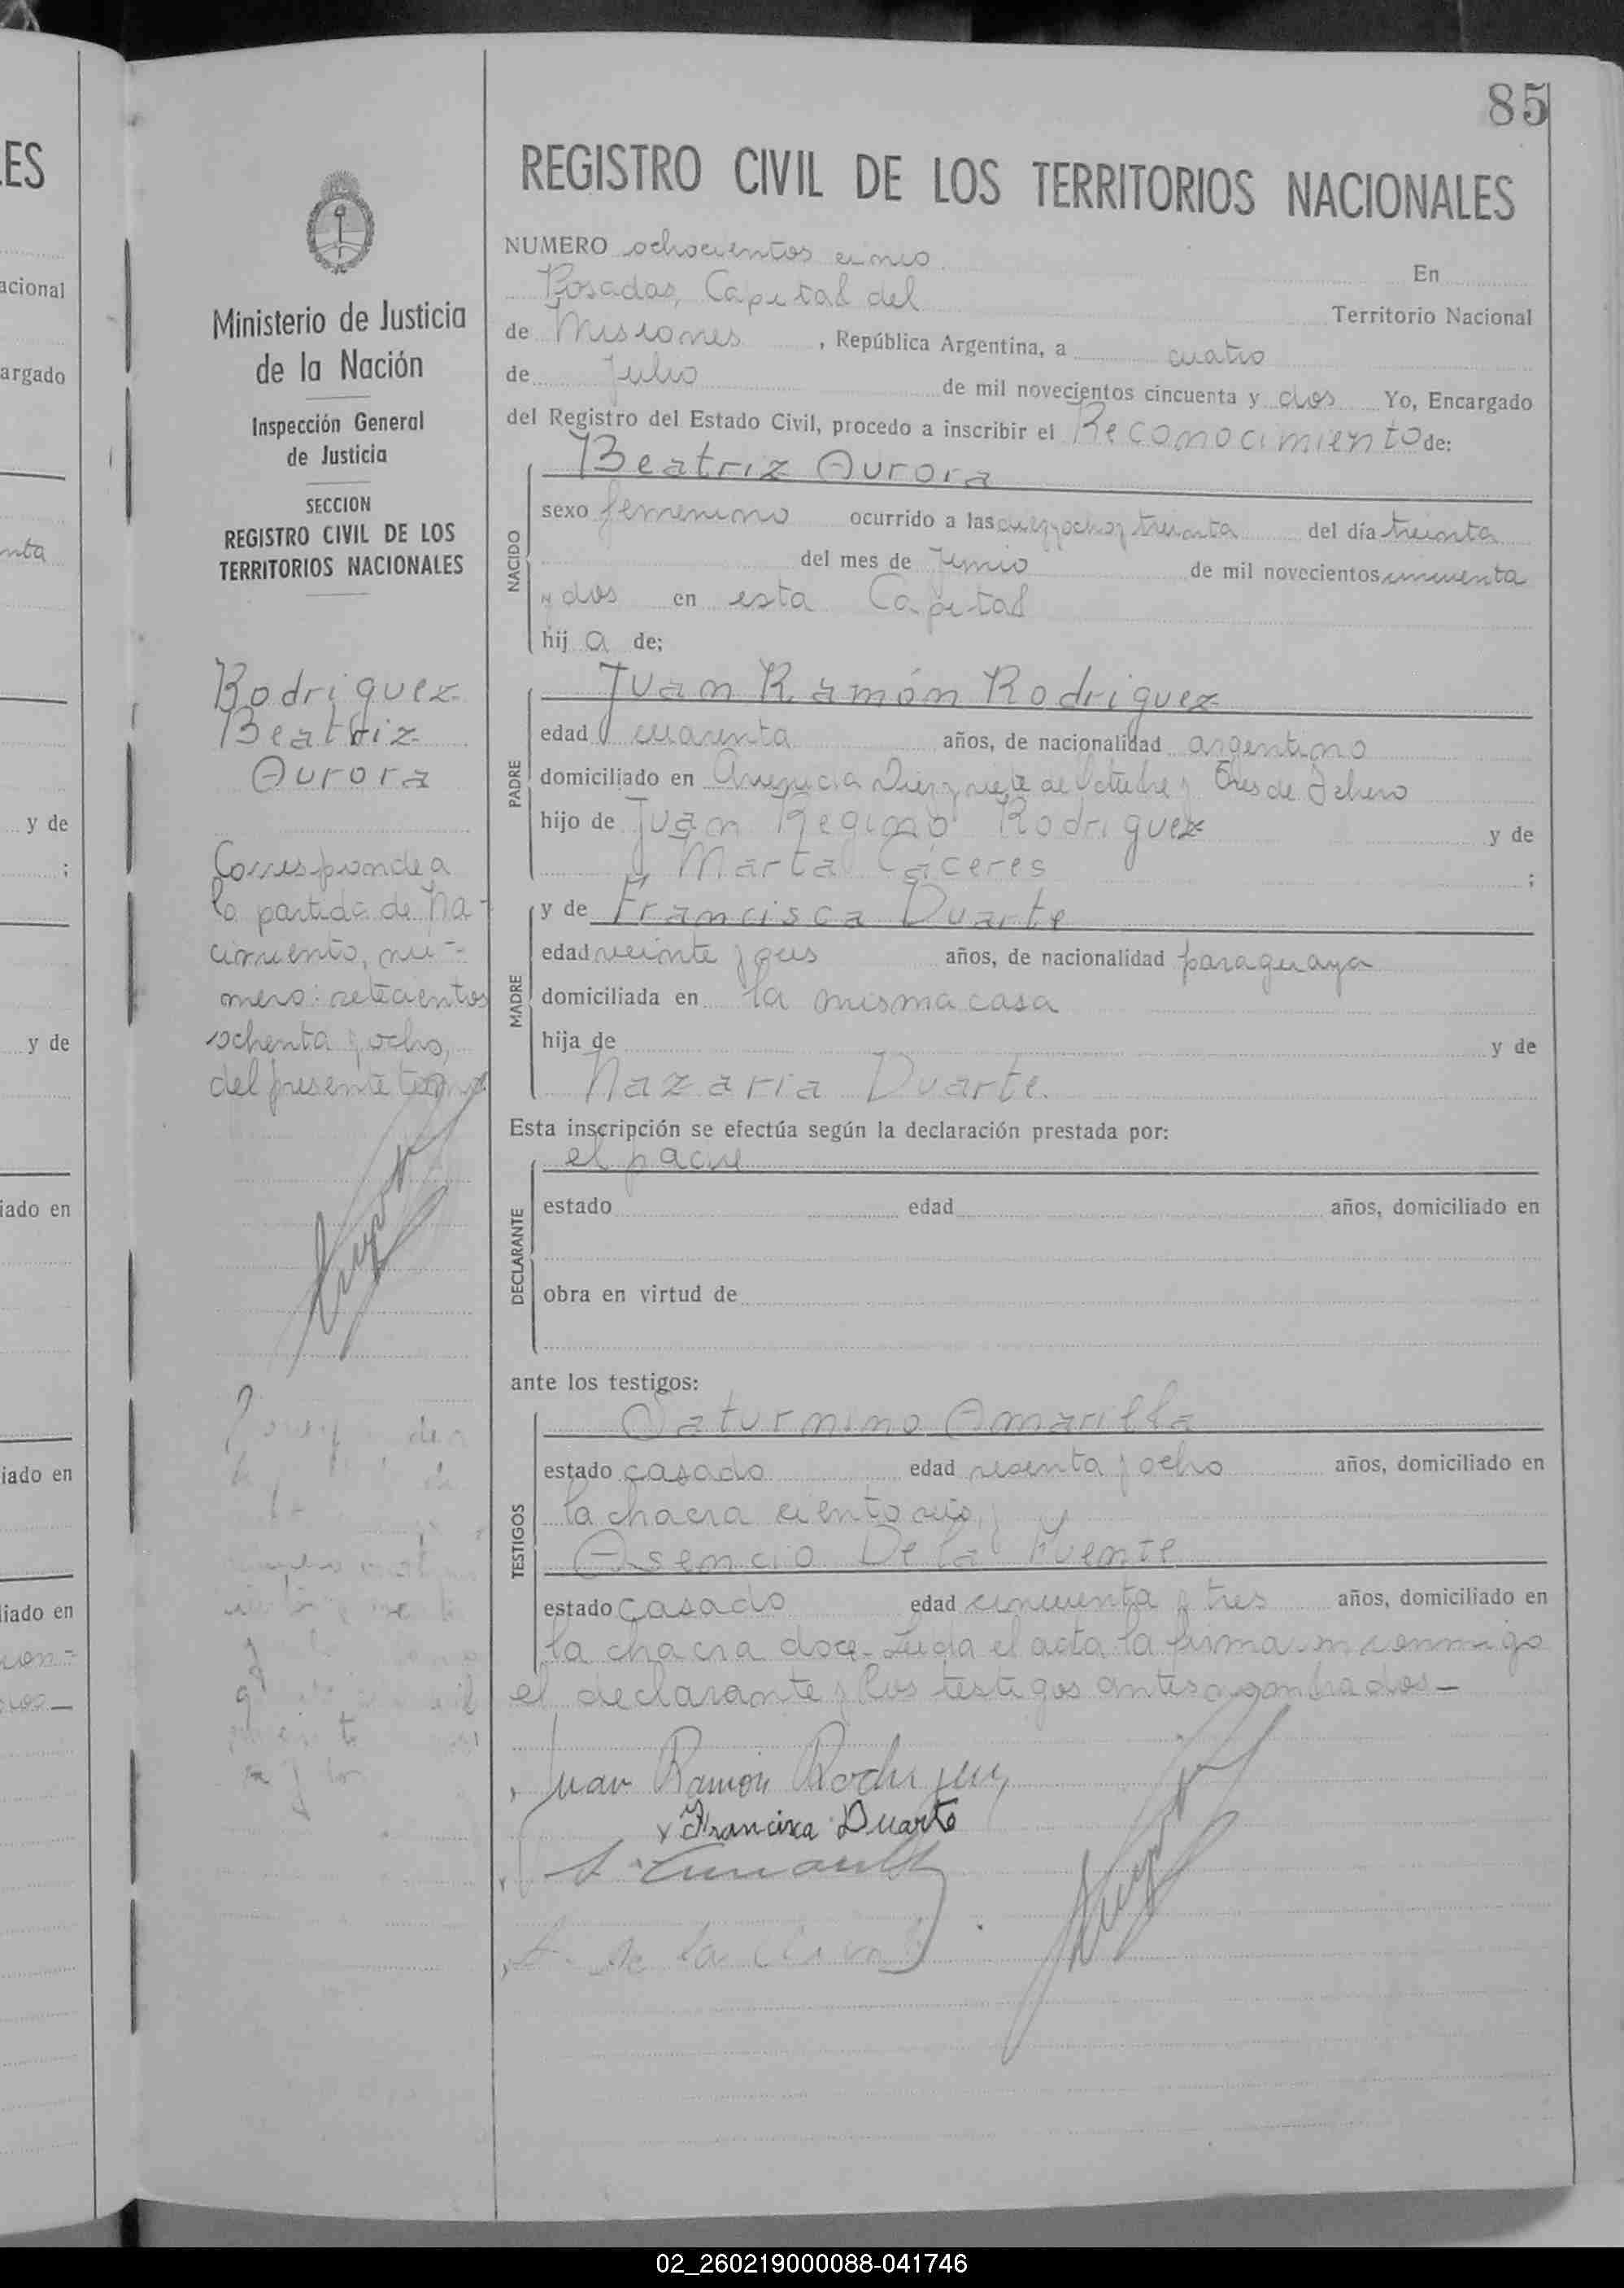 85
ES
acional
argado
nta
y de
;
y de
iado en
iado en
liado en
con=
Ministerio de Justicia
de la Nación
Inspección General
de Justicia
SECCION
REGISTRO CIVIL DE LOS
TERRITORIOS NACIONALES
Rodriguez
Beatriz
Aurora
Corresponde a
la partida de Na-
cimiento, nú-
mero: setecientos
ochenta y ocho,
del presente tomo
REGISTRO CIVIL DE LOS TERRITORIOS NACIONALES
NUMERO ochocientos cinco En
Posadas, Capital del Territorio Nacional
de Misiones, República Argentina, a cuatro
de Julio de mil novecientos cincuenta y dos Yo, Encargado
del Registro del Estado Civil, procedo a inscribir el Reconocimiento de:
NACIDO
Beatriz Aurora
sexo femenino ocurrido a las diez y ocho y treinta del día treinta
del mes de Junio de mil novecientos cincuenta
y dos en esta Capital
hij a de;
PADRE
Juan Ramón Rodriguez
edad cuarenta años, de nacionalidad argentino
domiciliado en Avenida Diez y siete de Octubre y Tres de Febrero
hijo de Juan Regino Rodriguez y de
Marta Cáceres ;
MADRE
y de Francisca Duarte
edad veinte y seis años, de nacionalidad paraguaya
domiciliada en la misma casa
hija de y de
Nazaria Duarte.
Esta inscripción se efectúa según la declaración prestada por:
DECLARANTE
el padre
estado edad años, domiciliado en
obra en virtud de
ante los testigos:
TESTIGOS
Saturnino Amarilla
estado casado edad sesenta y ocho años, domiciliado en
la chacra ciento seis, y
Asencio De la Fuente
estado casado edad cincuenta y tres años, domiciliado en
la chacra doce.- Leida el acta la firman conmigo
el declarante y los testigos antes nombrados.-
Juan Ramón Rodriguez
x Francisca Duarte
A. de la
02_260219000088-041746